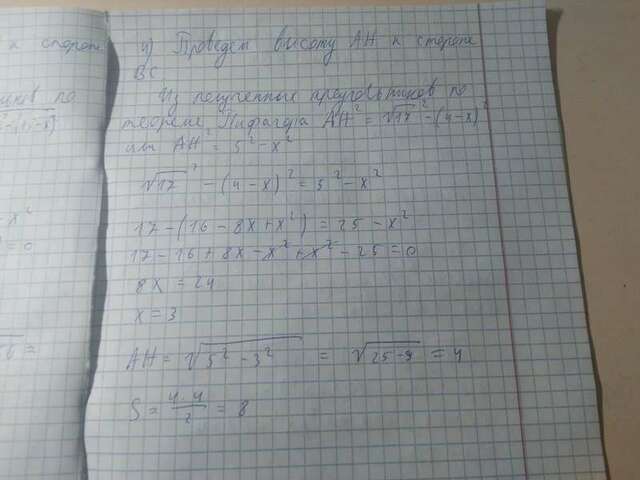 к стороне
4) Проведем высоту AH к стороне
BC
Из полученных треугольников по
теореме Пифагора AH² = √17² - (4-x)²
или AH² = 5² - x²
√17² - (4 - x)² = 5² - x²
17 - (16 - 8x + x²) = 25 - x²
17 - 16 + 8x - x² + x² - 25 = 0
8x = 24
x = 3
AH = √5² - 3² = √25 - 9 = 4
S = 4·4/2 = 8